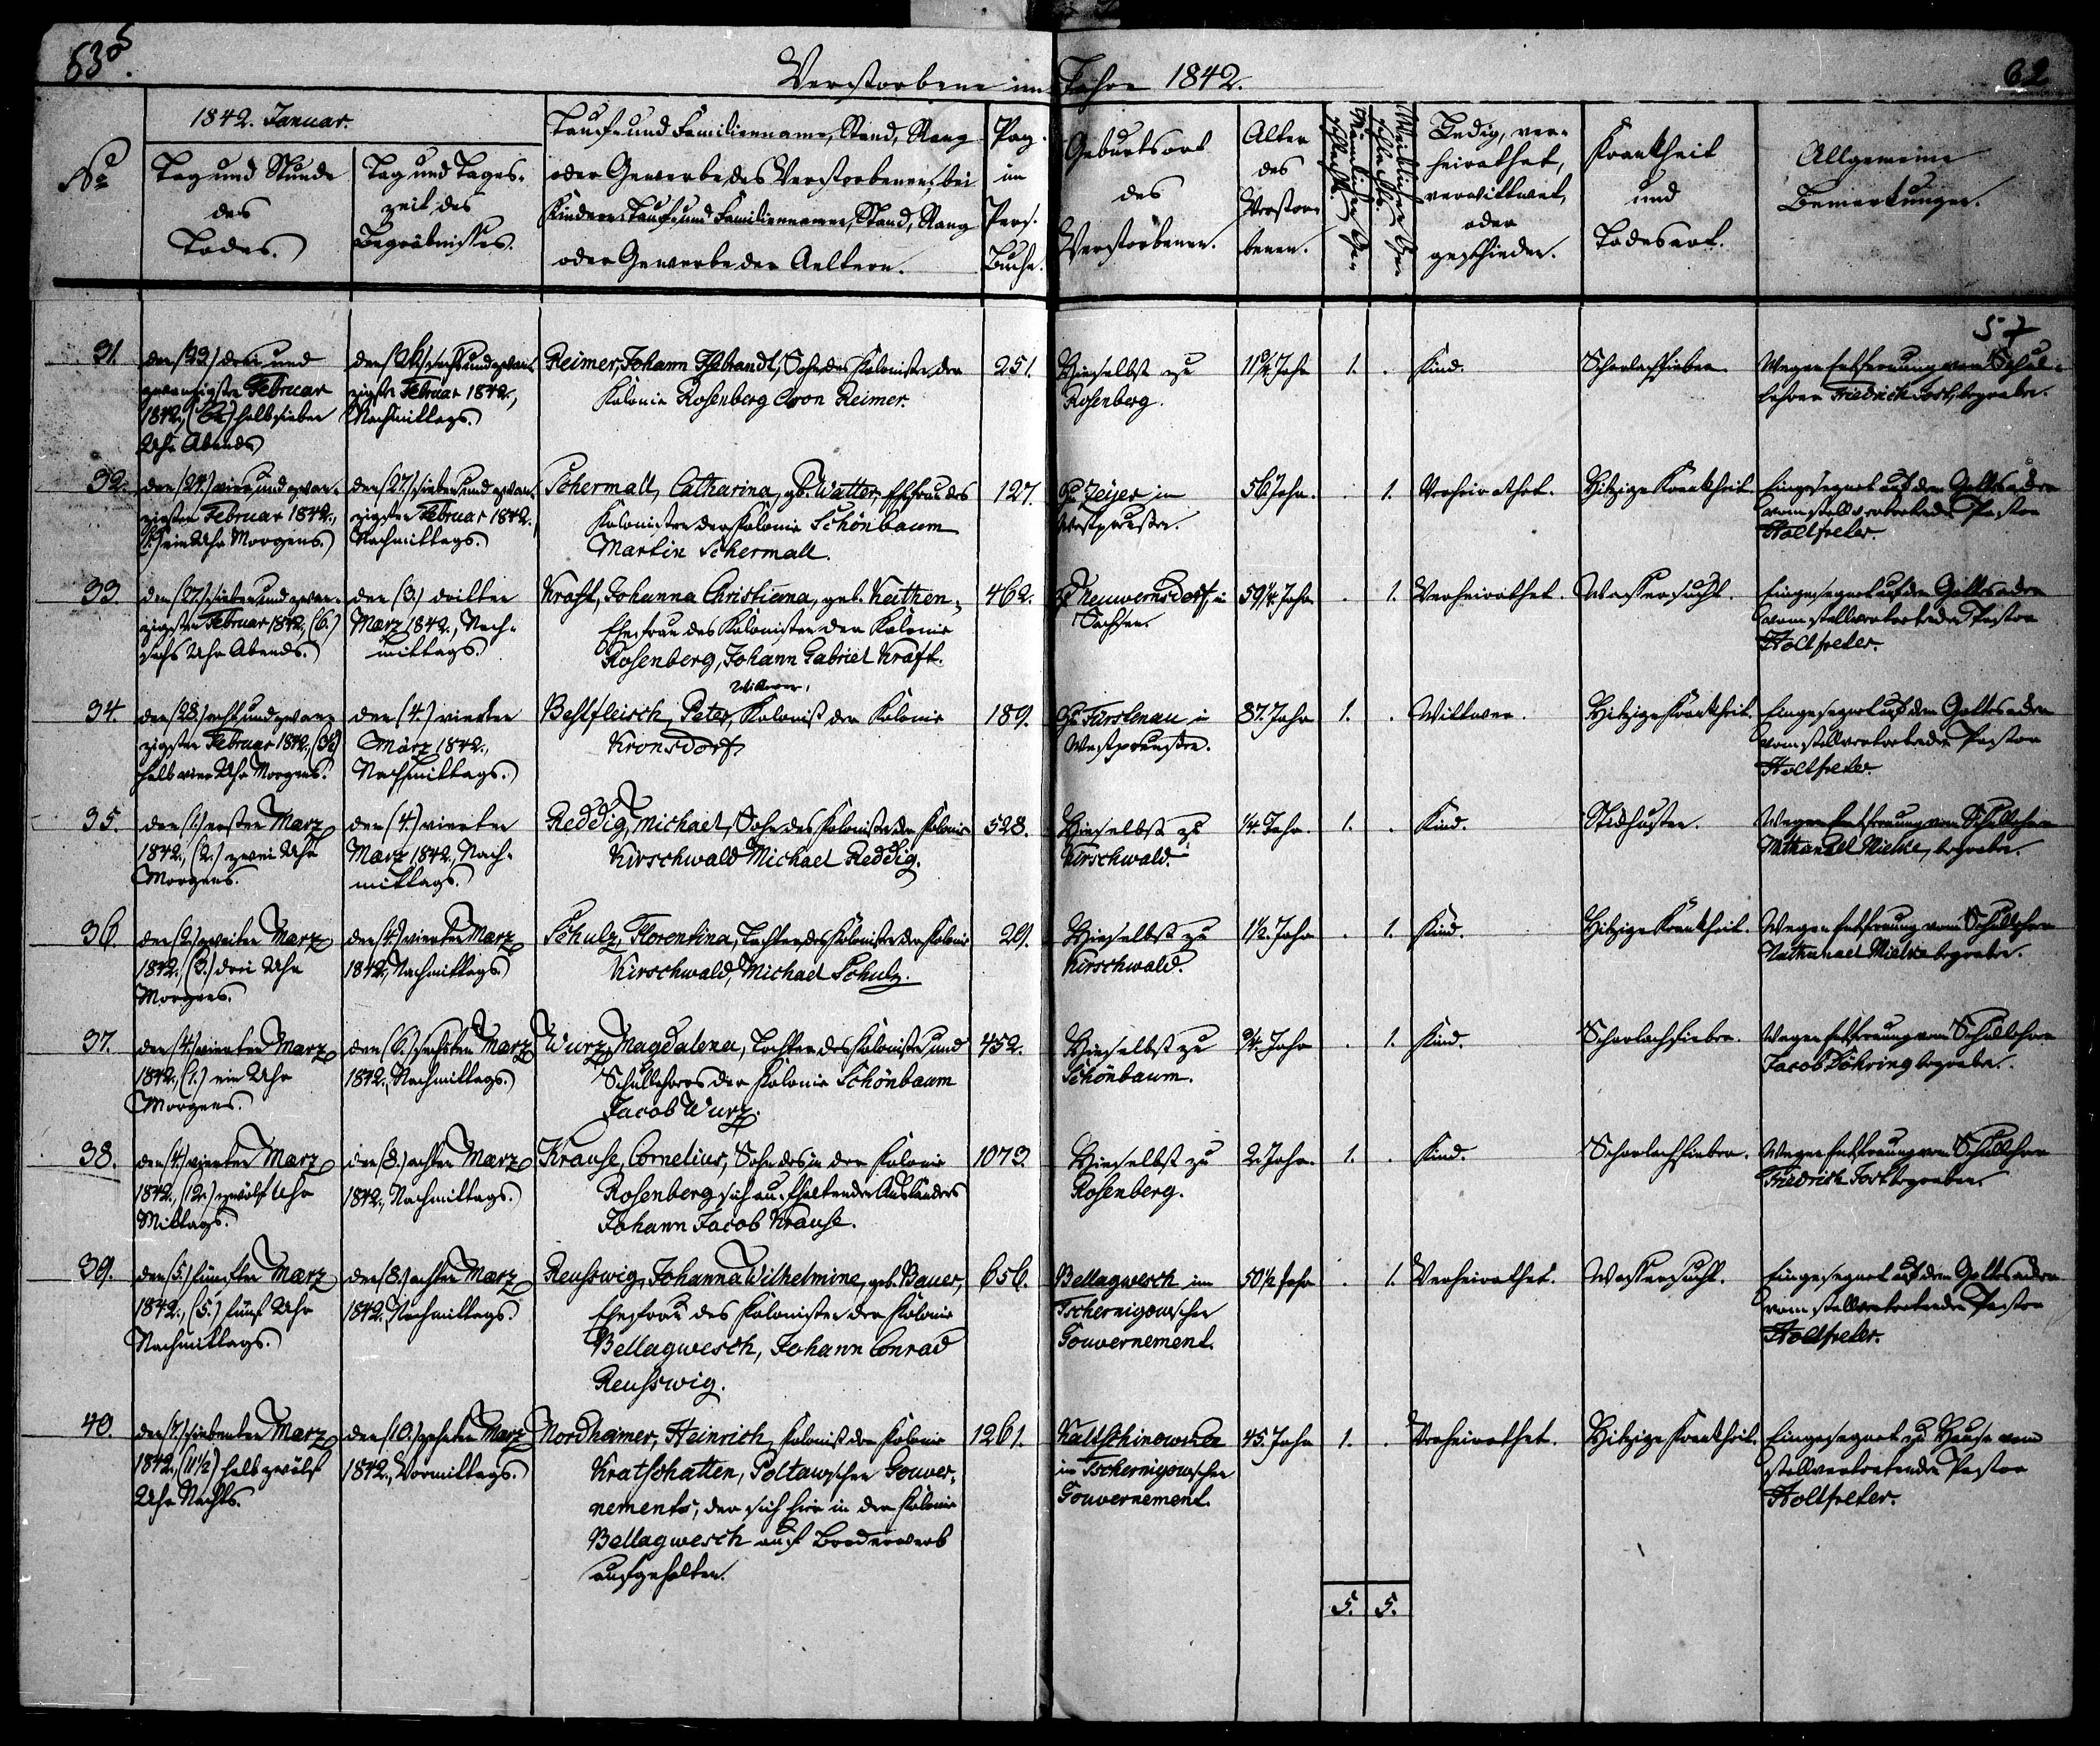 Verstorbene im Jahre 1842.
62
1842. Januar.
No
Tag und Stunde
des
Todes.
Tag und Tages-
zeit des
Begräbnisses.
Tauf- und Familienname, Stand, Rang
oder Gewerbe des Verstorbenen; bei
Kindern: Tauf- und Familienname, Stand, Rang
oder Gewerbe der Aeltern.
Pag.
im
Pers.
Buche.
Geburtsort
des
Verstorbenen.
Alter
des
Verstor-
benen.
Männlichen Ge-
schlechts.
Weiblichen Ge-
schlechts.
Ledig, ver-
heirathet,
verwittwet,
oder
geschieden.
Krankheit
und
Todesart.
Allgemeine
Bemerkungen.
57
31.
den (23.) drei und
zwanzigsten Februar
1842, halb sieben
Uhr Abends.
den (26.) sechs und zwan-
zigsten Februar 1842,
Nachmittags.
Reimer, Johann Isbrandt, Sohn des Kolonisten der
Kolonie Rosenberg Aron Reimer.
251.
Hieselbst zu
Rosenberg.
Jahr
1.
.
Kind.
Scharlachfieber.
Wegen Entfernung vom Schul-
lehrer Friedrich Jost, begraben.
32.
den (24.) vier und zwan-
zigsten Februar 1842,
(1.) ein Uhr Morgens.
den (27.) sieben und zwan-
zigsten Februar 1842.,
Nachmittags.
Schermall, Catharina, geb. Watter, Ehefrau des
Kolonisten der Kolonie Schönbaum
Martin Schermall.
127.
Zeyer in
Westpreußen.
56 Jahr.
.
1.
Verheirathet.
Hitzige Krankheit.
Eingesegnet auf dem Gottesacker
vom stellvertretenden Pastor
Holtfreter.
33.
den (27.) sieben und zwan-
zigsten Februar 1842, (6.)
sechs Uhr Abends.
den (3.) dritten
März 1842., Nach-
mittags.
Kraft, Johanna Christiana, geb. Keithen,
Ehefrau des Kolonisten der Kolonie
Rosenberg, Johann Gabriel Kraft.
462.
Neuwernsdorf in
Sachsen.
59 1/4 Jahr
.
1.
Verheirathet.
Wassersucht.
Eingesegnet auf dem Gottesacker
vom stellvertretenden Pastor
Holtfreter.
34.
den (28.) acht und zwan-
zigsten Februar 1842., (3½)
halb vier Uhr Morgens.
den (4.) vierten
März 1842.,
Nachmittags.
Wittwer,
Behlfleisch, Peter, Kolonist der Kolonie
Kronsdorf.
189.
Fürstenau in
Westpreußen.
87. Jahr
1.
.
Wittwer.
Hitzige Krankheit.
Eingesegnet auf dem Gottesacker
vom stellvertretenden Pastor
Holtfreter.
35.
den (1.) ersten März
1842., (2.) zwei Uhr
Morgens.
den (4.) vierten
März 1842., Nach-
mittags.
Reddig, Michael, Sohn des Kolonisten der Kolonie
Kirschwald Michael Reddig.
528.
Hieselbst zu
Kirschwald.
1/4. Jahr.
1.
.
Kind.
Stickhusten.
Wegen Entfernung vom Schullehrer
Nathanael Mielke, begraben.
36.
den (2.) zweiten März
1842., (3.) drei Uhr
Morgens.
den (4.) vierten März
1842., Nachmittags.
Schulz, Florentina, Tochter des Kolonisten der Kolonie
Kirschwald, Michael Schulz.
29.
Hieselbst zu
Kirschwald.
1½. Jahr
.
1.
Kind.
Hitzige Krankheit.
Wegen Entfernung vom Schullehrer
Nathanael Mielke begraben.
37.
den (4.) vierten März
1842., (1.) ein Uhr
Morgens.
den (6.) sechsten März
1842., Nachmittags.
Wurz, Magdalena, Tochter des Kolonisten und
Schullehrers der Kolonie Schönbaum
Jacob Wurz.
452.
Hieselbst zu
Schönbaum.
3/4. Jahr
.
1.
Kind.
Scharlachfieber.
Wegen Entfernung vom Schullehrer
Jacob Döhring begraben.
38.
den (4.) vierten März
1842., (12.) zwölf Uhr
Mittags.
den (8.) achten März
1842., Nachmittags.
Krause, Cornelius, Sohn des in der Kolonie
Rosenberg sich aufhaltenden Ausländers
Johann Jacob Krause.
1073
Hieselbst zu
Rosenberg.
2. Jahr.
1.
.
Kind.
Scharlachfieber.
Wegen Entfernung vom Schullehrer
Friedrich Jost begraben.
39.
den (5.) fünften März
1842., (5.) fünf Uhr
Nachmittags.
den (8.) achten März
1842., Nachmittags.
Reusswig, Johanna Wilhelmine, geb. Bauer,
Ehefrau des Kolonisten der Kolonie
Bellagwesch, Johann Conrad
Reusswig.
656.
Bellagwesch im
Tschernigowschen
Gouvernement.
50 1/2 Jahr
.
1.
Verheirathet.
Wassersucht.
Eingesegnet auf dem Gottesacker
vom stellvertretenden Pastor
Holtfreter.
40.
den (7.) siebenten März
1842., (11½) halb zwölf
Uhr Nachts.
den (10.) zehnten März
1842., Vormittags.
Nordheimer, Heinrich, Kolonist der Kolonie
Kratschatten, Poltawschen Gouver-
nements, der sich hier in der Kolonie
Bellagwesch auf Broderwerb
aufgehalten.
1261.
Kaltschinowka
im Tschernigowschen
Gouvernement.
45. Jahr
1.
.
Verheirathet.
Hitzige Krankheit.
Eingesegnet zu Hause vom
stellvertretenden Pastor
Holtfreter.
5.
5.